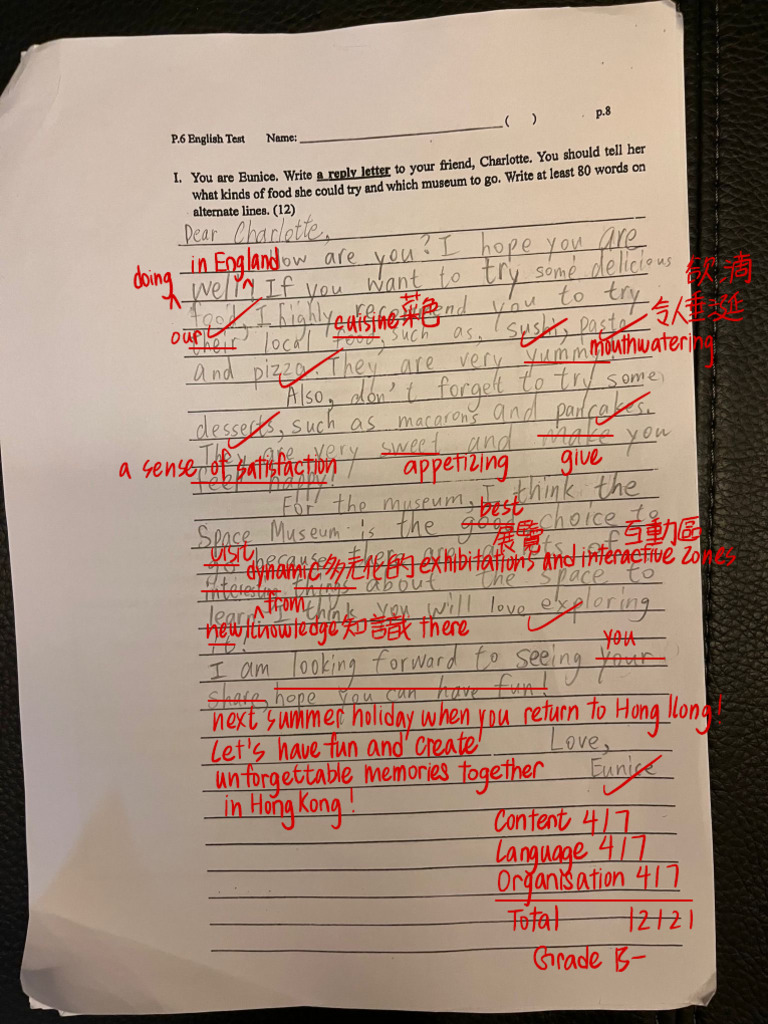 ( ) p.8
P.6 English Test Name:
I. You are Eunice. Write a reply letter to your friend, Charlotte. You should tell her
what kinds of food she could try and which museum to go. Write at least 80 words on
alternate lines. (12)
Dear Charlotte,
in England ow are you? I hope you are
doing well in If you want to try some delicious
food, I highly recommend you to try
cuisine 菜色 令人垂涎
our their local food, such as, sushi, pasta
mouthwatering
and pizza. They are very yummy
Also, don't forget to try some
desserts, such as macarons and pancakes.
They are very sweet and make you
a sense of satisfaction appetizing give
feel happy!
For the museum, I think the
best
Space Museum is the good choice to
visit 展覽 互動區
because there are of
dynamic 多元化的 exhibitations and interactive zones
interesting things about the space to
from
learn. I think you will love exploring
new knowledge 知識 there
it!
you
I am looking forward to seeing your
share, hope you can have fun!
next summer holiday when you return to Hong Kong!
Let's have fun and create Love,
unforgettable memories together Eunice
in Hong Kong!
Content 4/7
Language 4/7
Organisation 4/7
Total 12/21
Grade B-